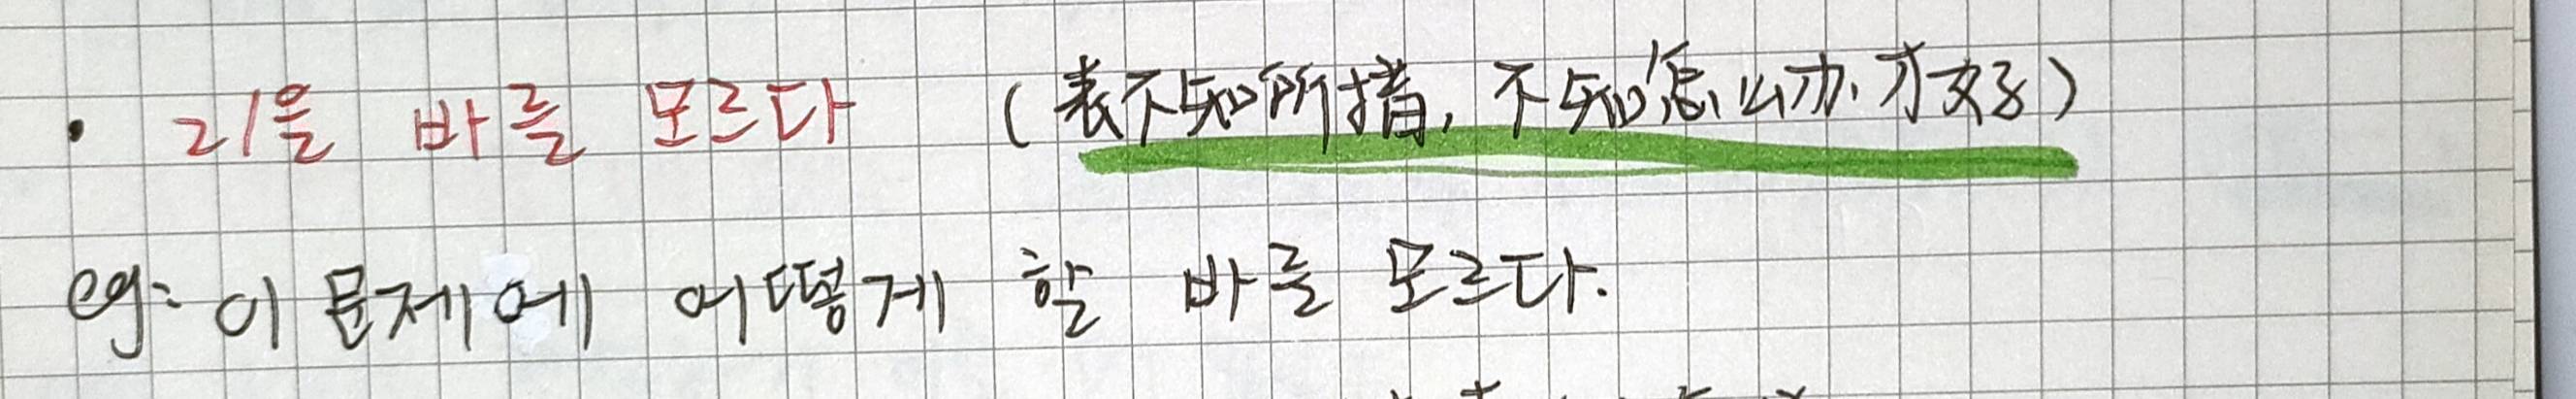 • ㄹ/을 바를 모르다 (表不知所措, 不知怎么办才好)
eg: 이 문제에 어떻게 할 바를 모르다.